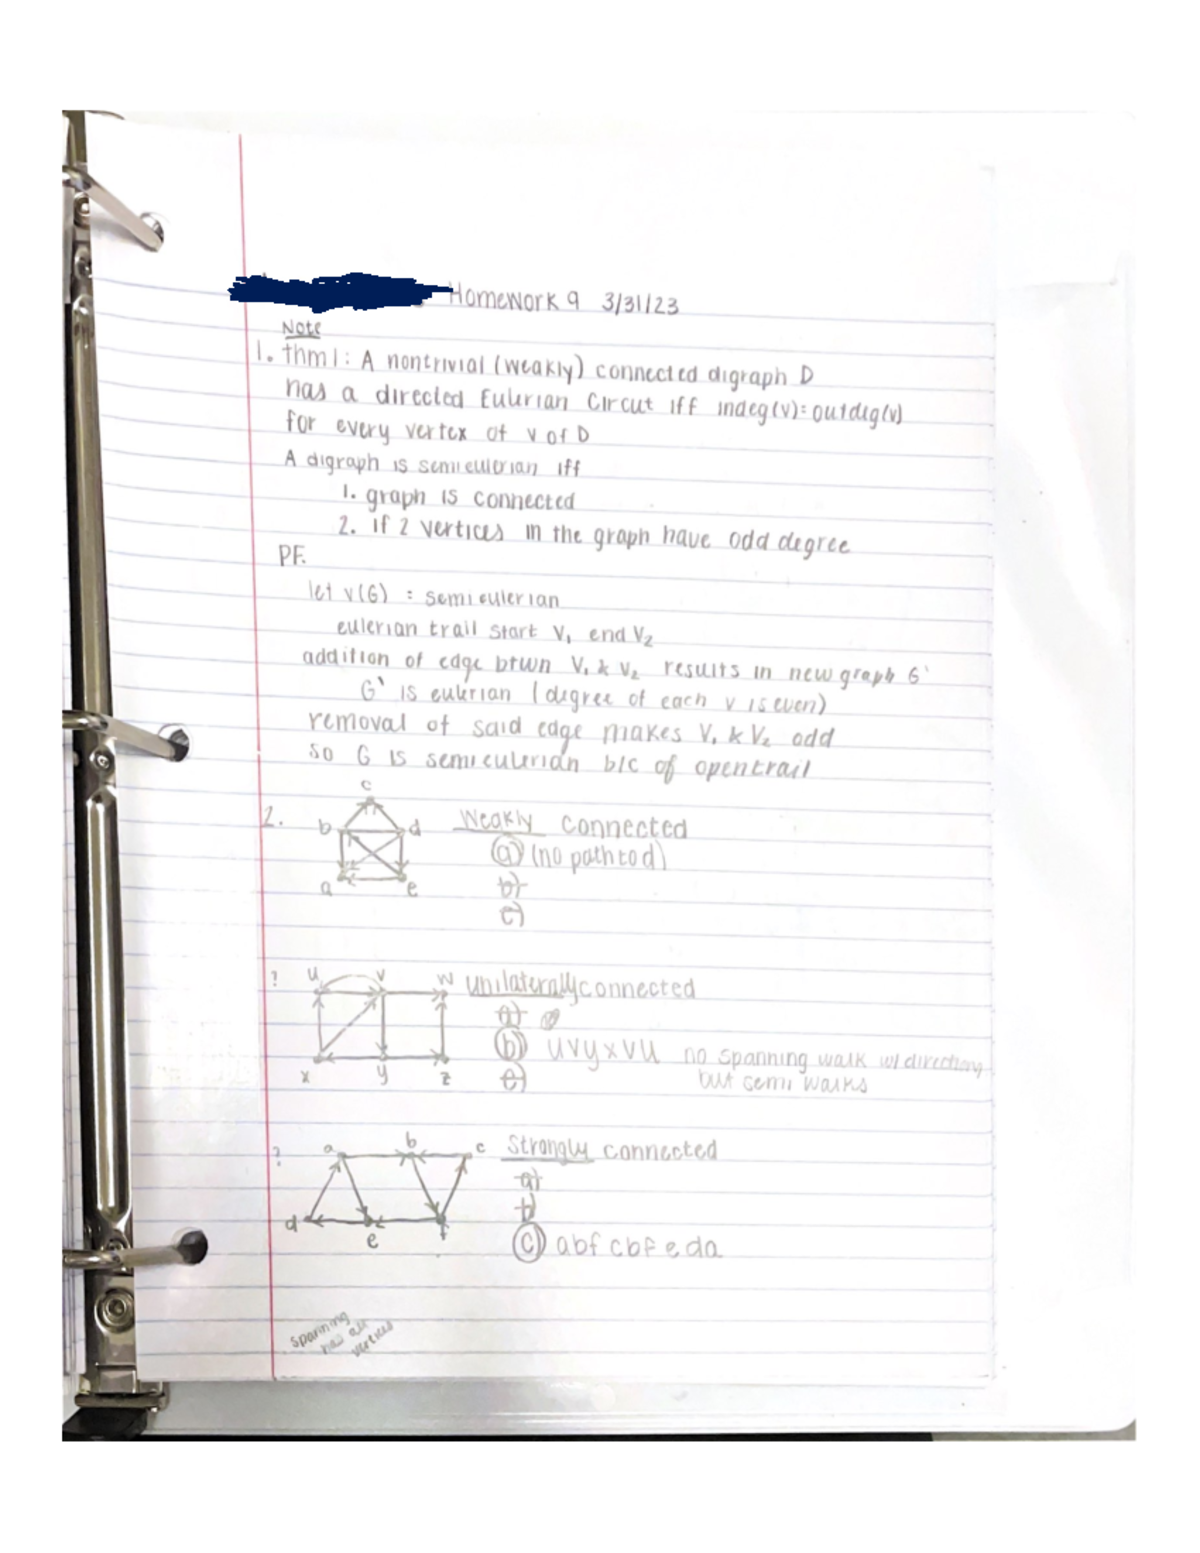 Homework 9 3/31/23
Note
1. thm1: A nontrivial (weakly) connected digraph D
has a directed Eulerian Circut iff indeg(v)=outdeg(v)
for every vertex of v of D
A digraph is semieulerian iff
1. graph is connected
2. if 2 vertices in the graph have odd degree
PF.
let v(G) = semieulerian
eulerian trail start V₁ end V₂
addition of edge btwn V₁ & V₂ results in new graph G`
G` is eulerian (degree of each v is even)
removal of said edge makes V₁ & V₂ odd
so G is semieulerian b/c of open trail
c
2. b d Weakly connected
a) (no path to d)
a e b)
c)
? u v w unilaterally connected
a)
b) uvyxvu no spanning walk w/ direction,
x y z c) but semi walks
? a b c Strongly connected
a)
b)
d e f
c) abfcbfeda
spanning
has all
vertices